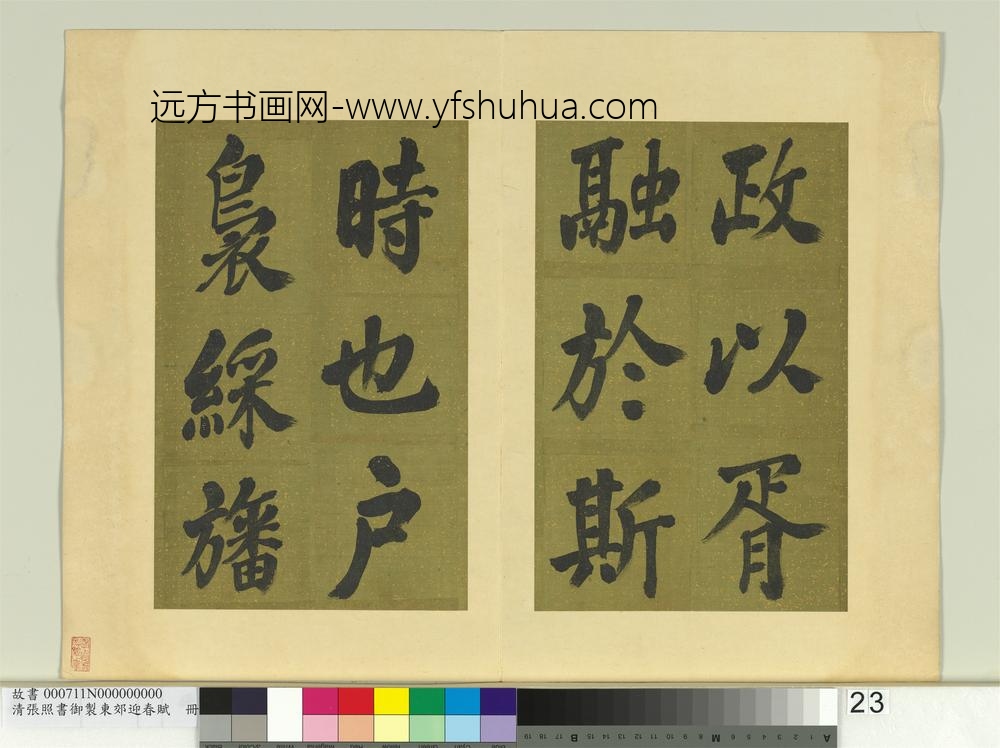 远方书画网-www.yfshuhua.com
政以胥
融於斯
時也户
裊綵旛
故書 000711N000000000
清張照書御製東郊迎春賦 冊
23